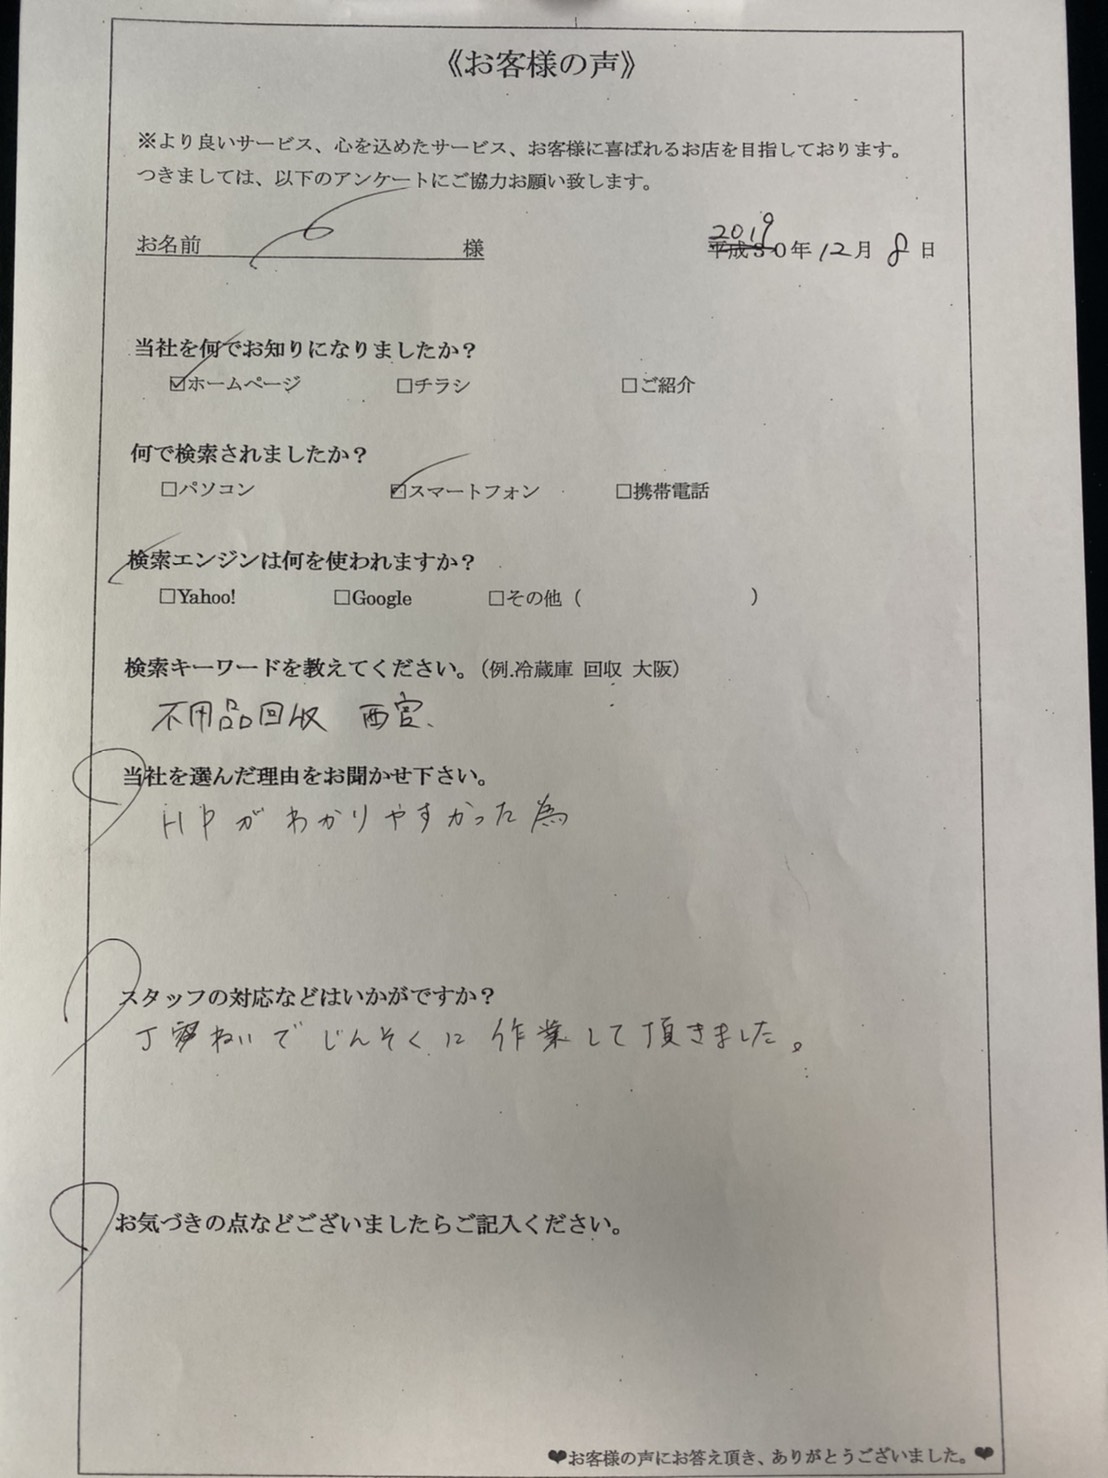 《お客様の声》
※より良いサービス、心を込めたサービス、お客様に喜ばれるお店を目指しております。
つきましては、以下のアンケートにご協力お願い致します。
お名前 様
2019
平成30年12月8日
当社を何でお知りになりましたか？
☑ホームページ □チラシ □ご紹介
何で検索されましたか？
□パソコン ☑スマートフォン □携帯電話
検索エンジンは何を使われますか？
□Yahoo! □Google □その他（ ）
検索キーワードを教えてください。（例.冷蔵庫 回収 大阪）
不用品回収 西宮、
当社を選んだ理由をお聞かせ下さい。
HPがわかりやすかった為
スタッフの対応などはいかがですか？
丁寧ねいでじんそくに作業して頂きました。
お気づきの点などございましたらご記入ください。
❤お客様の声にお答え頂き、ありがとうございました。❤